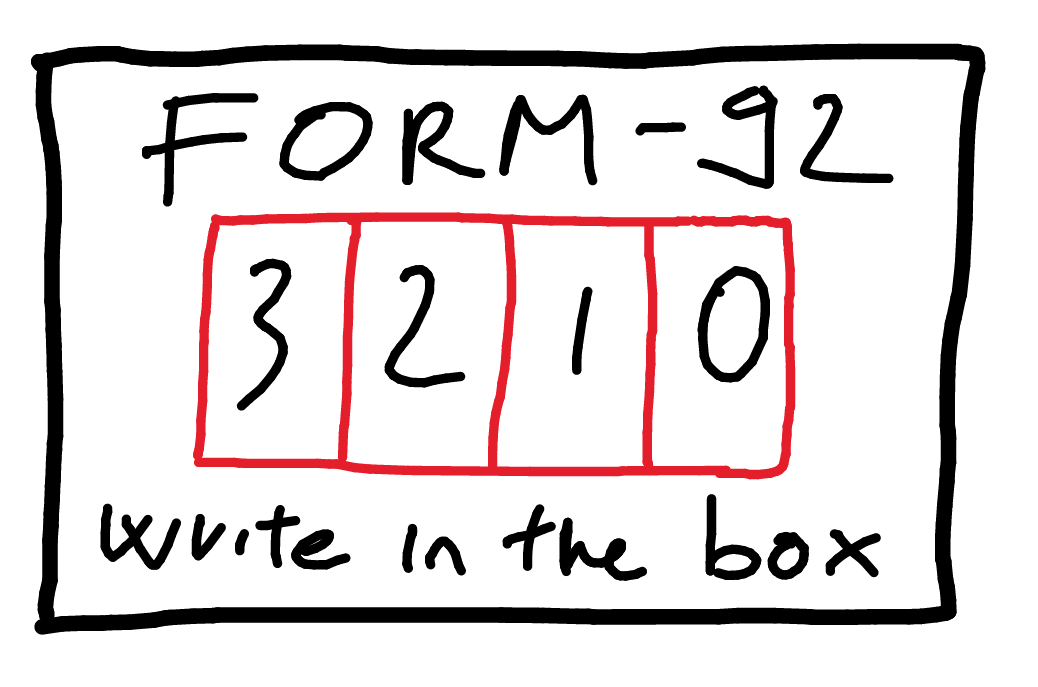 FORM-92
3 2 1 0
write in the box